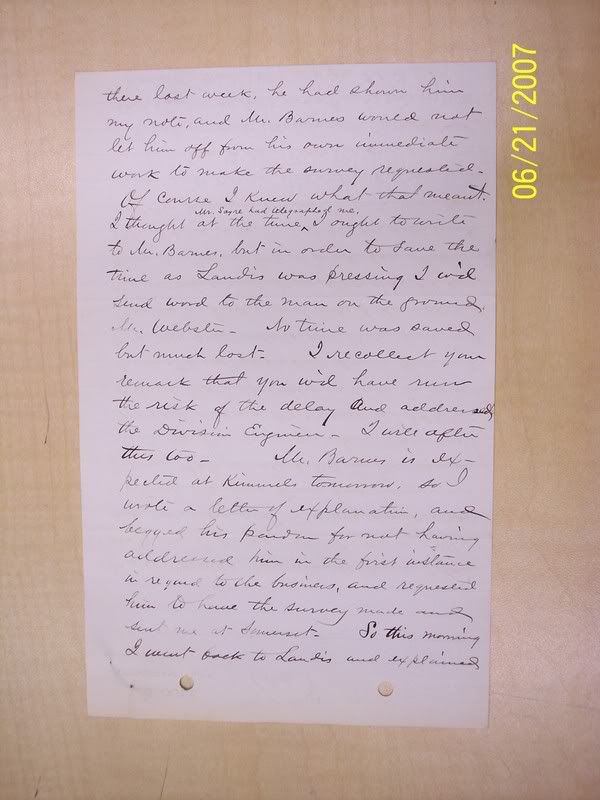 there last week, he had shown him
my note, and Mr. Barnes would not
let him off from his own immediate
work to make the survey requested.
Of course I knew what that meant.
Mr. Sayre had telegraphed me,
I thought at the time, I ought to write
to Mr. Barnes, but in order to save the
time as Landis was pressing I wd
send word to the man on the ground,
Mr. Webster - No time was saved
but much lost - I recollect your
remark that you wd have run
the risk of the delay and addressed
the Division Engineer - I will after
this too - Mr. Barnes is ex-
pected at Kimmels tomorrow, so I
wrote a letter of explanation, and
begged his pardon for not having
addressed him in the first instance
in regard to the business, and requested
him to have the survey made and
sent me at Somerset - So this morning
I went back to Landis and explained
06/21/2007